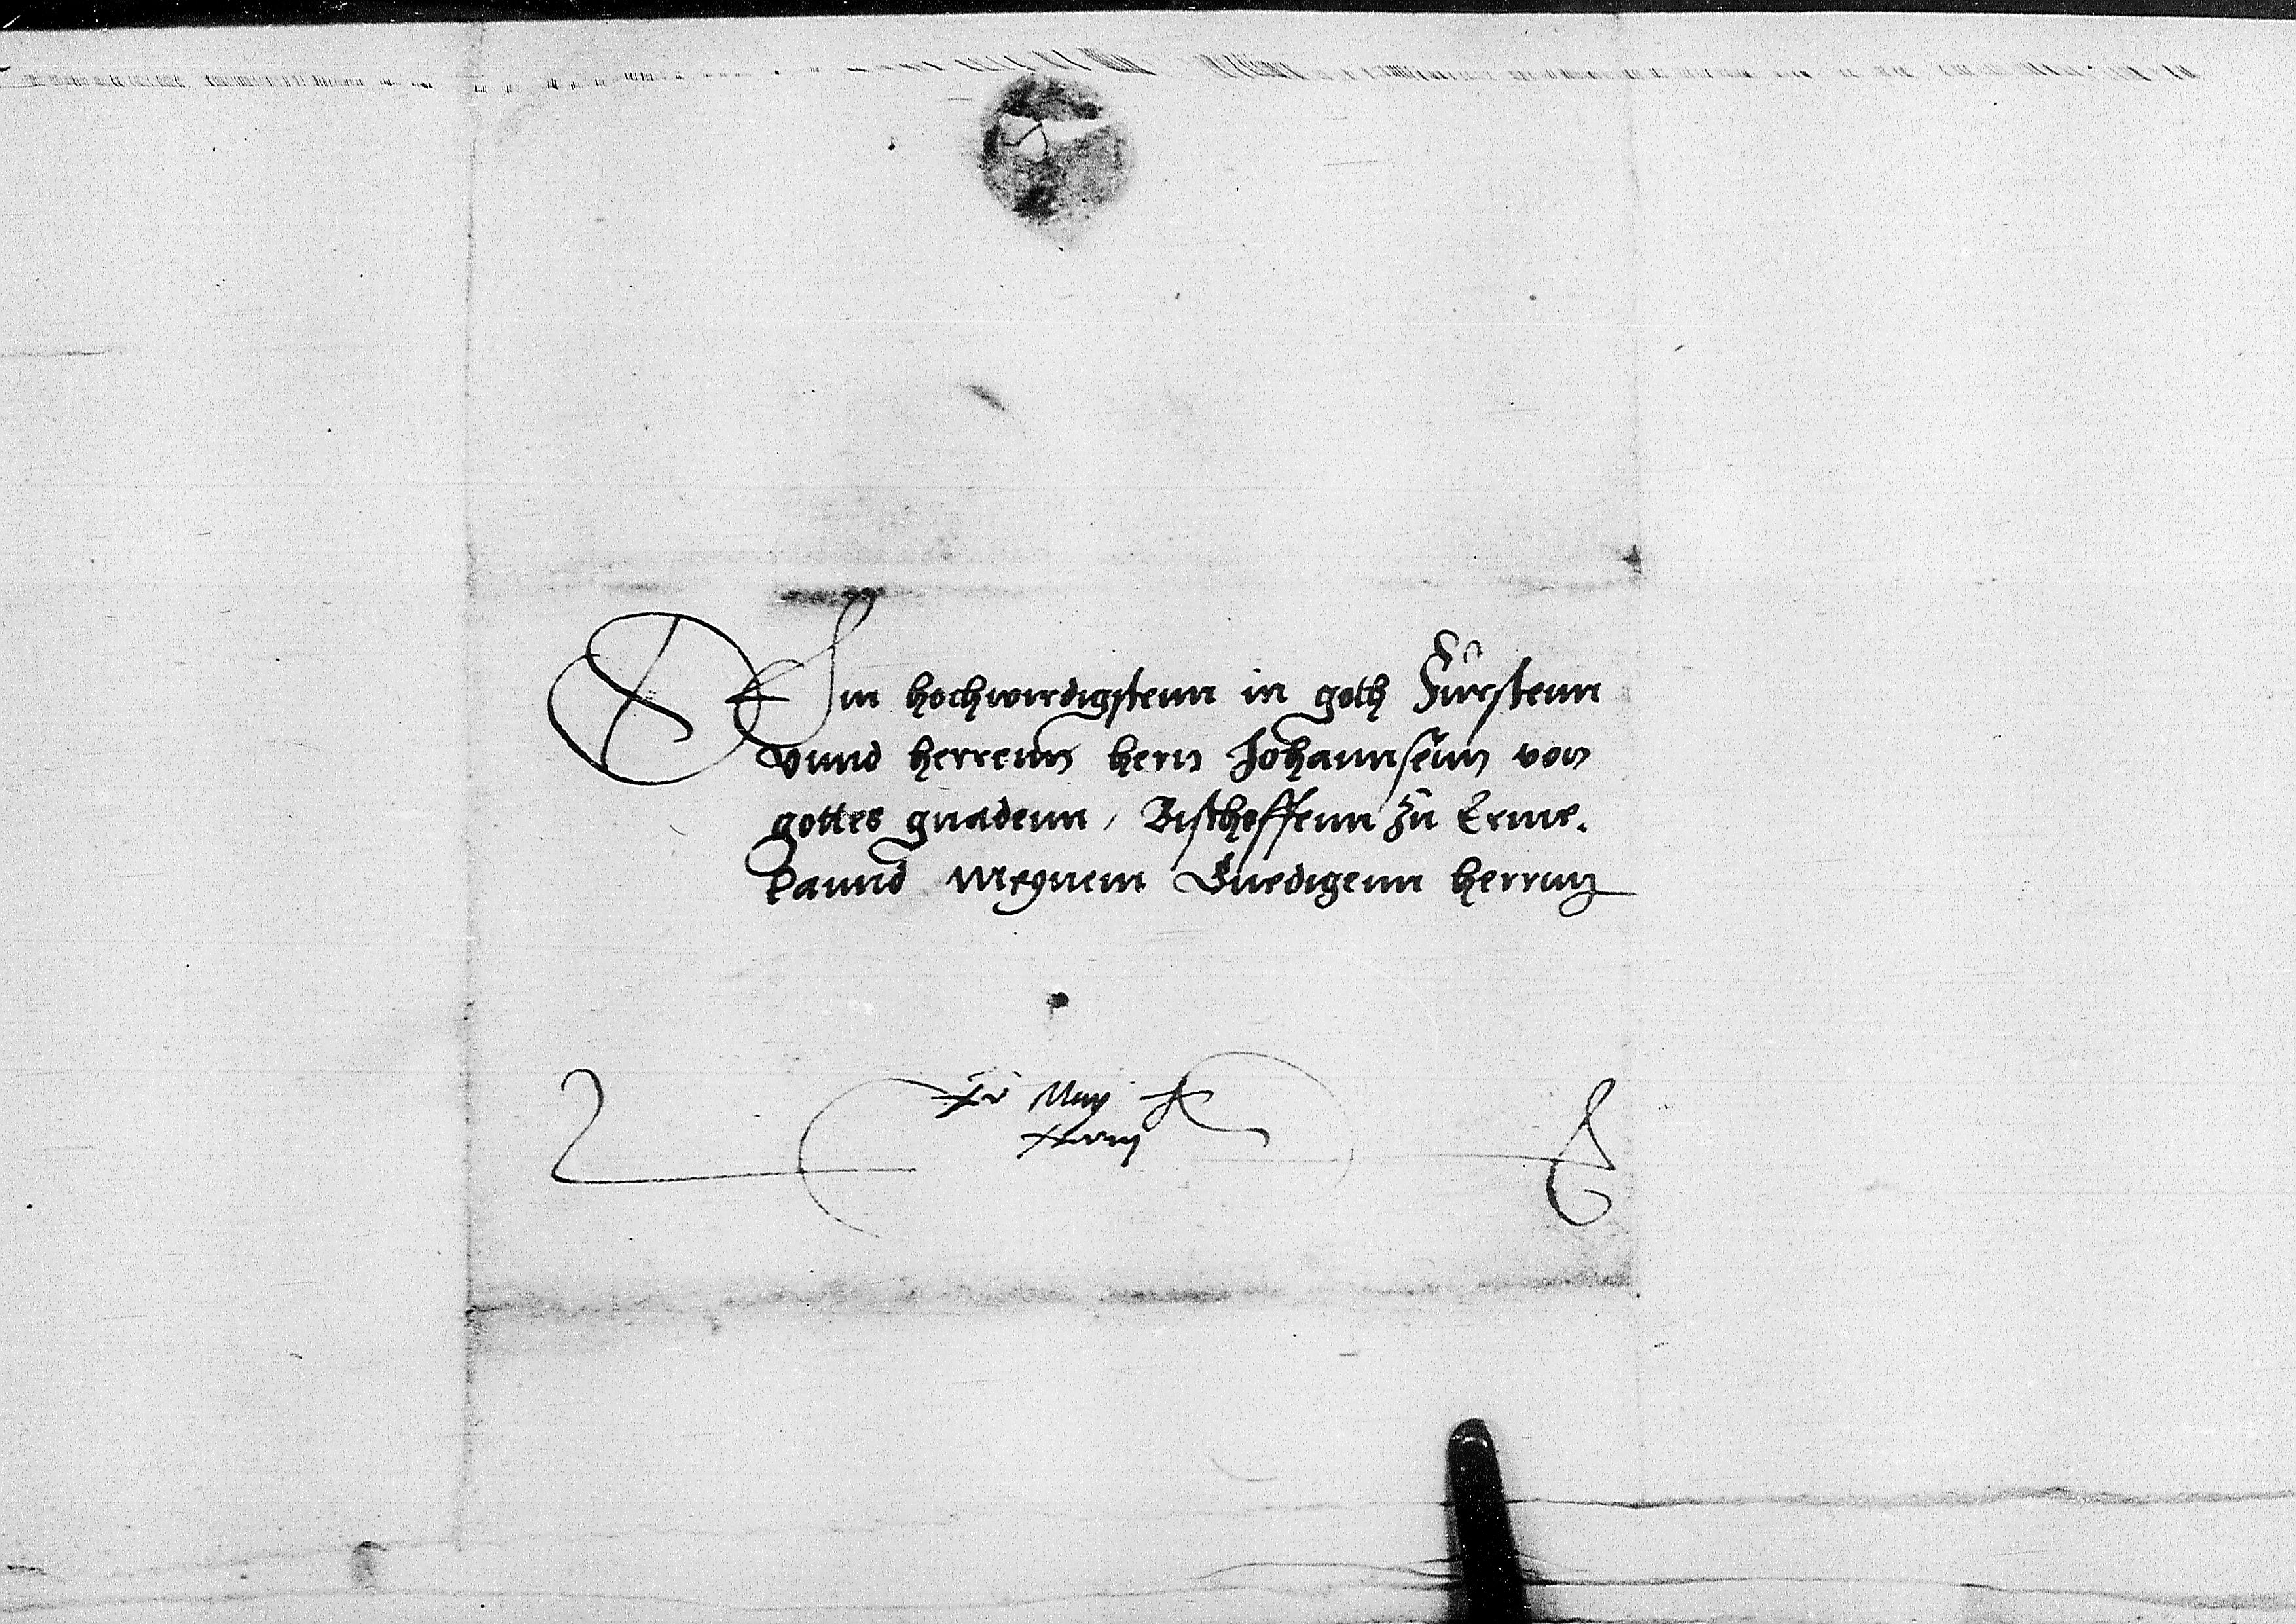 Dem hochwirdigstenn in goth Fürstenn
vnnd herrenn hern Johannsenn von
gottes gnadenn, Bischoffenn zu Erme.
Lannd Meynem Gnedigenn herrnn
May